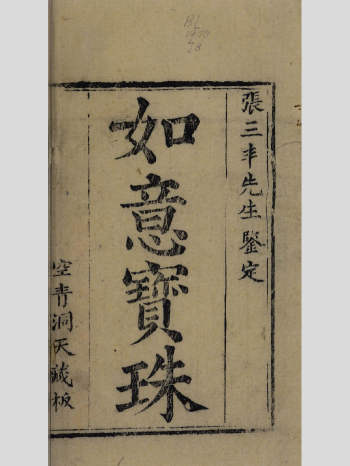 張三丰先生鑒定
如意寶珠
空青洞天藏板